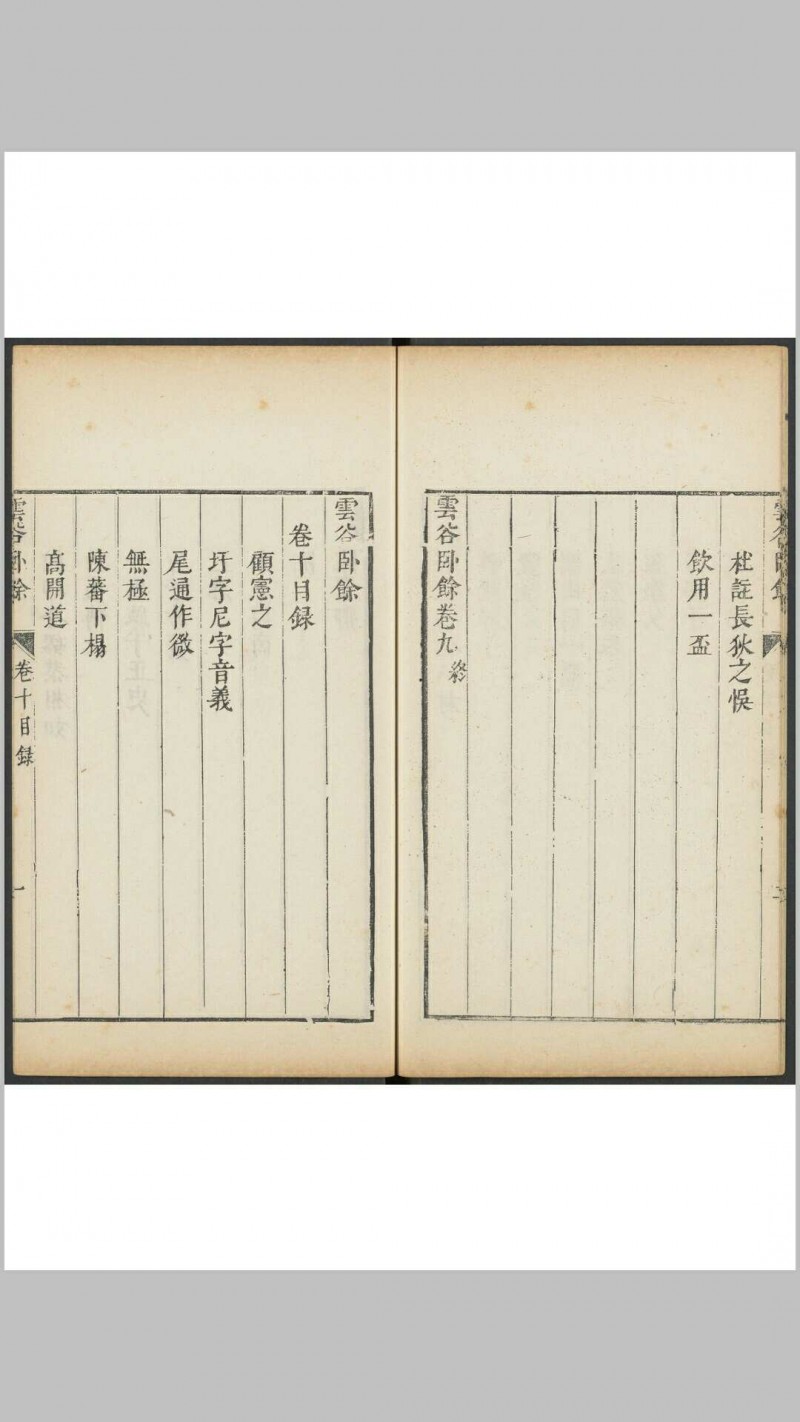 雲谷卧餘
杜註長狄之悞
飲用一盃
雲谷卧餘卷九 終
雲谷卧餘
卷十目録
顧憲之
圩字尼字音義
尾通作微
無極
陳蕃下榻
髙開道
雲谷卧餘 卷十目録 一